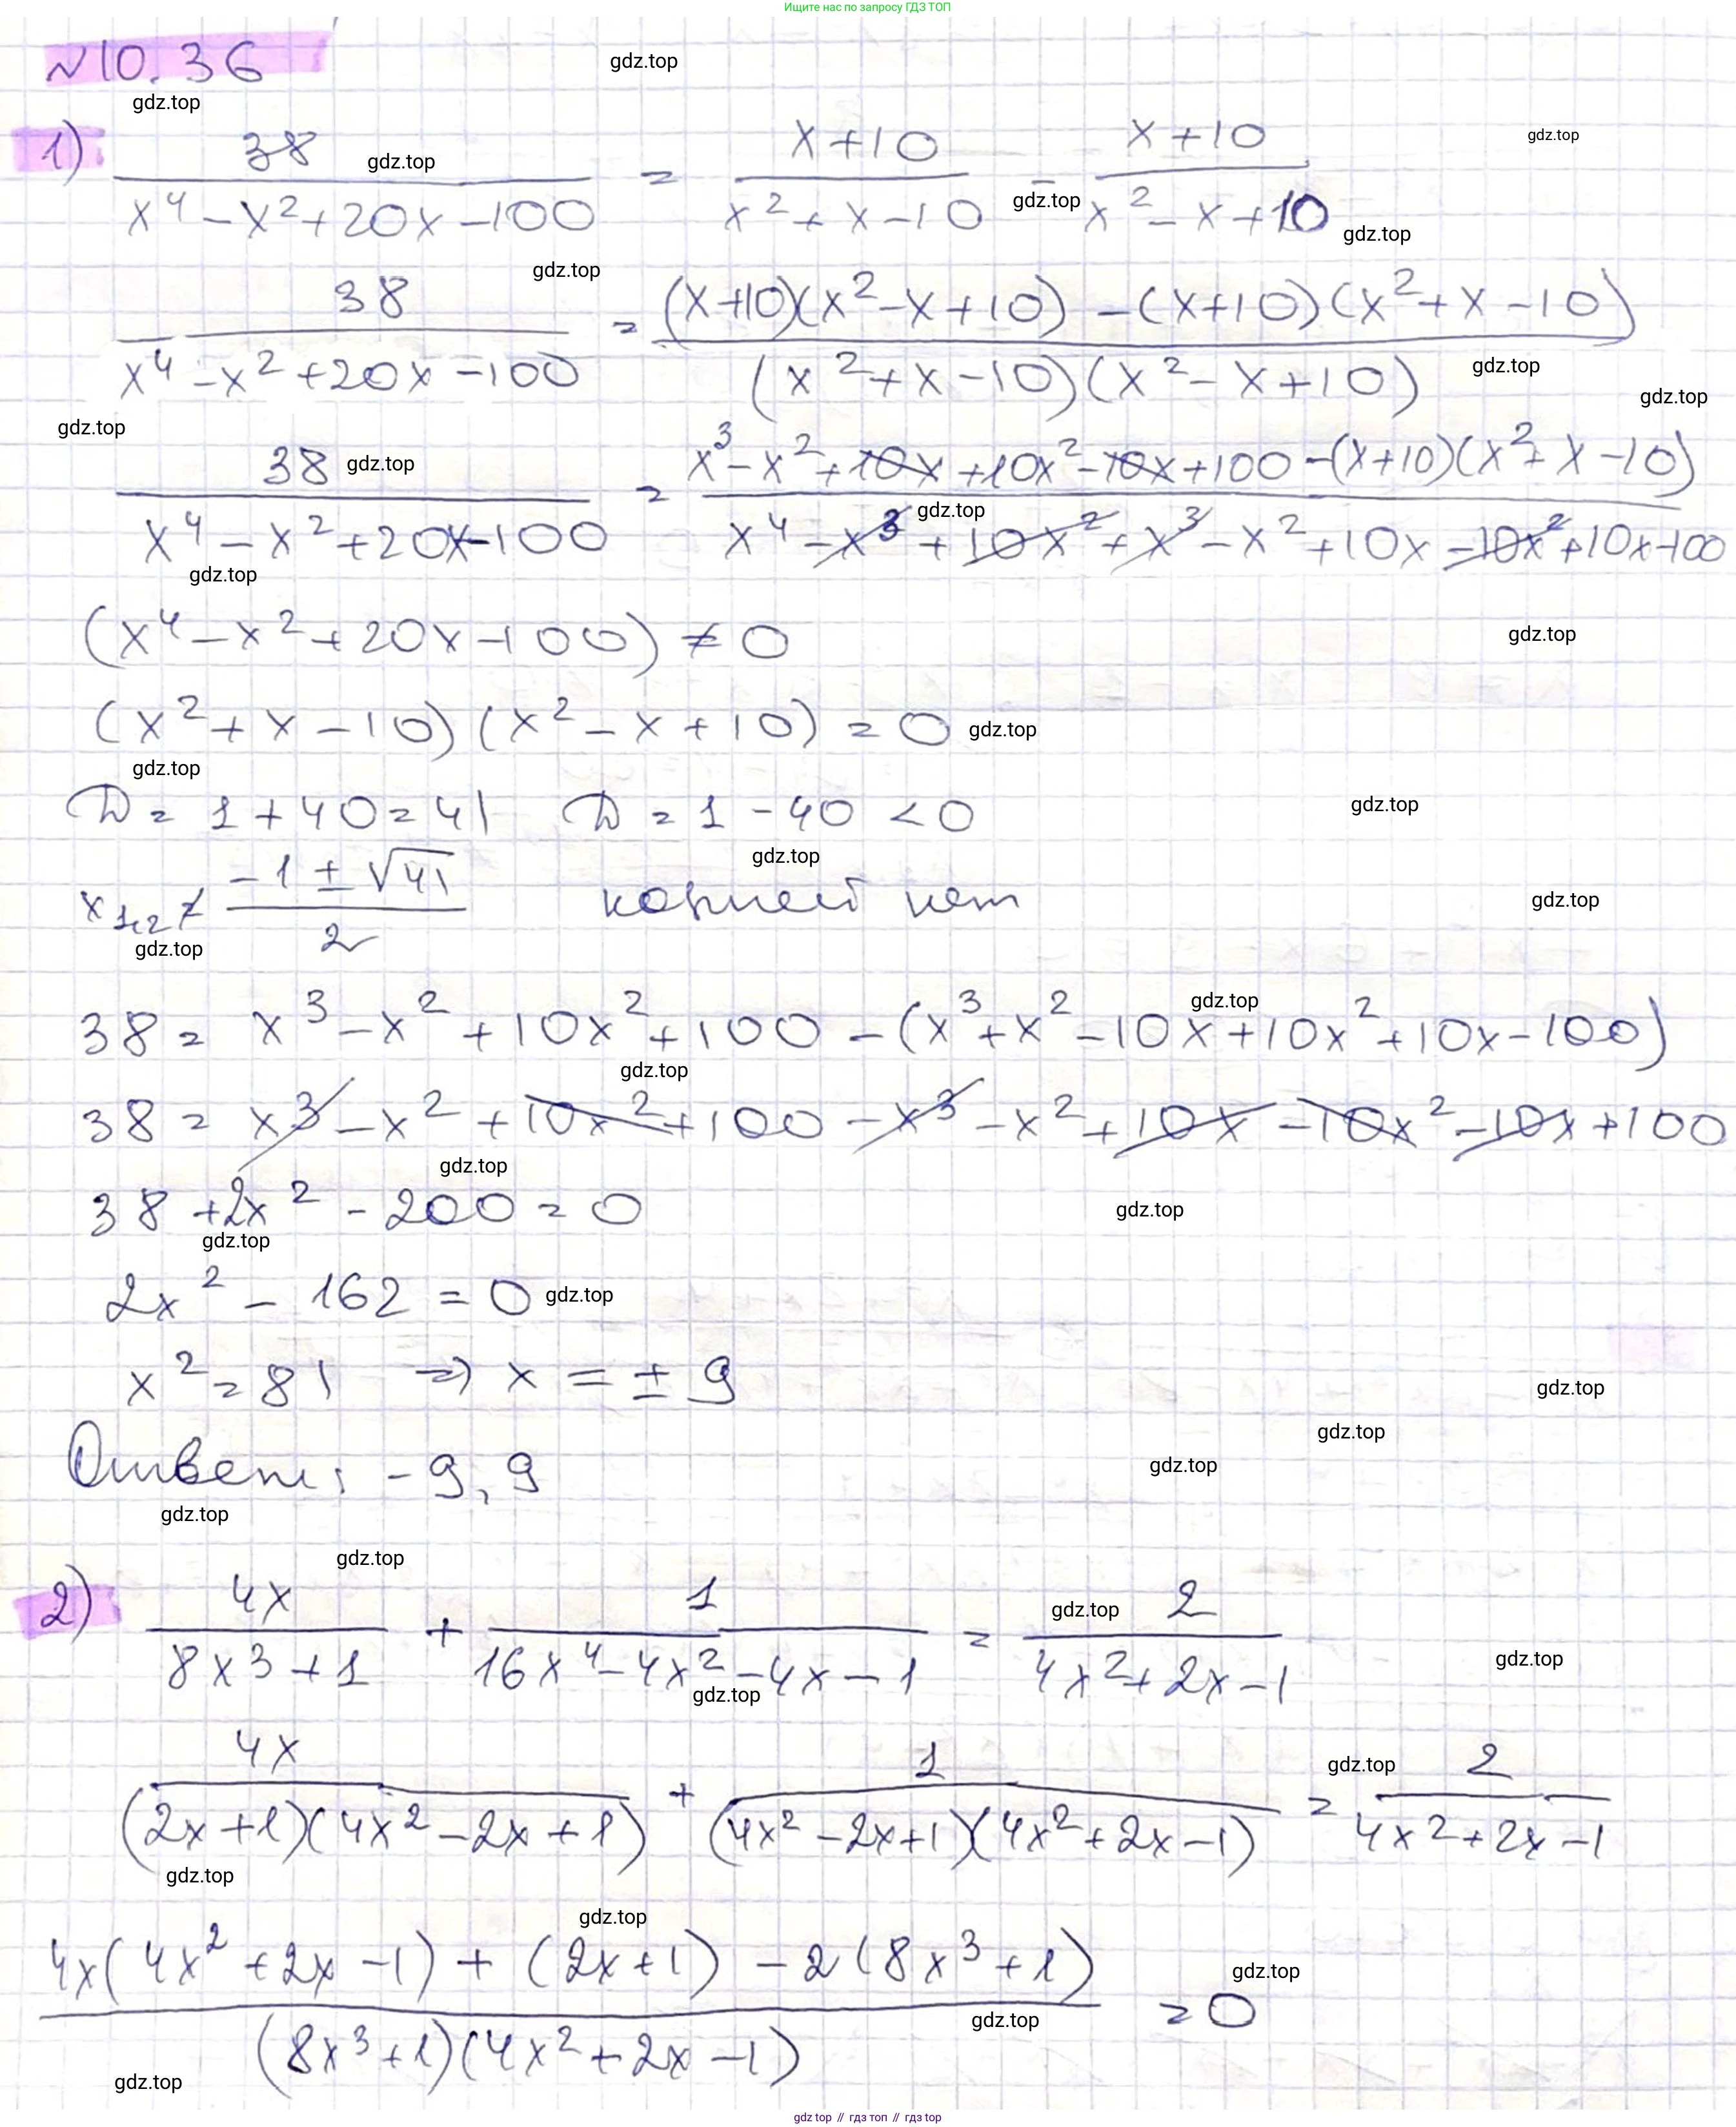 Ищите нас по запросу ГДЗ ТОП
№10.36
gdz.top
gdz.top
1) 38/(x⁴ − x² + 20x − 100) = (x+10)/(x² + x − 10) − (x+10)/(x² − x + 10)
gdz.top
gdz.top
gdz.top
gdz.top
gdz.top
38/(x⁴ − x² + 20x − 100) = ((x+10)(x² − x + 10) − (x+10)(x² + x − 10))/((x² + x − 10)(x² − x + 10))
gdz.top
gdz.top
gdz.top
38/(x⁴ − x² + 20x − 100) = (x³ − x² + 10x + 10x² − 10x + 100 − (x+10)(x² + x − 10))/(x⁴ − x³ + 10x² + x³ − x² + 10x − 10x² + 10x − 100)
gdz.top
gdz.top
gdz.top
(x⁴ − x² + 20x − 100) ≠ 0
gdz.top
(x² + x − 10)(x² − x + 10) = 0
gdz.top
gdz.top
D = 1 + 40 = 41 D = 1 − 40 < 0
gdz.top
gdz.top
x₁,₂ ≠ (−1 ± √41)/2 корней нет
gdz.top
gdz.top
38 = x³ − x² + 10x² + 100 − (x³ + x² − 10x + 10x² + 10x − 100)
gdz.top
gdz.top
38 = x³ − x² + 10x² + 100 − x³ − x² + 10x − 10x² − 10x + 100
gdz.top
38 + 2x² − 200 = 0
gdz.top
gdz.top
2x² − 162 = 0
gdz.top
x² = 81 ⇒ x = ± 9
gdz.top
gdz.top
Ответ: −9, 9
gdz.top
gdz.top
gdz.top
2) 4x/(8x³ + 1) + 1/(16x⁴ − 4x² − 4x − 1) = 2/(4x² + 2x − 1)
gdz.top
gdz.top
gdz.top
4x/((2x+1)(4x² − 2x + 1)) + 1/((4x² − 2x + 1)(4x² + 2x − 1)) = 2/(4x² + 2x − 1)
gdz.top
gdz.top
gdz.top
(4x(4x² + 2x − 1) + (2x+1) − 2(8x³ + 1))/((8x³ + 1)(4x² + 2x − 1)) = 0
gdz.top
gdz.top
gdz.top
gdz top // гдз топ // gdz top